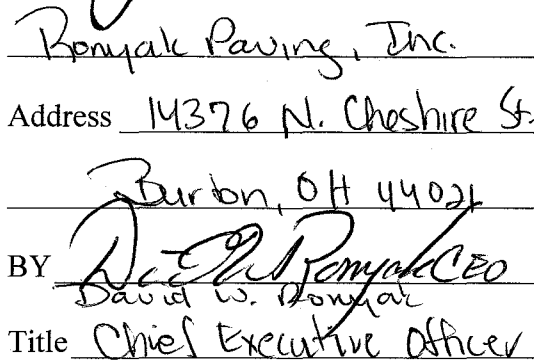 Ronyak Paving, Inc.
Address 14376 N. Cheshire St.
Burton, OH 44021
BY Ronyak CEO
David W. Ronyak
Title Chief Executive Officer